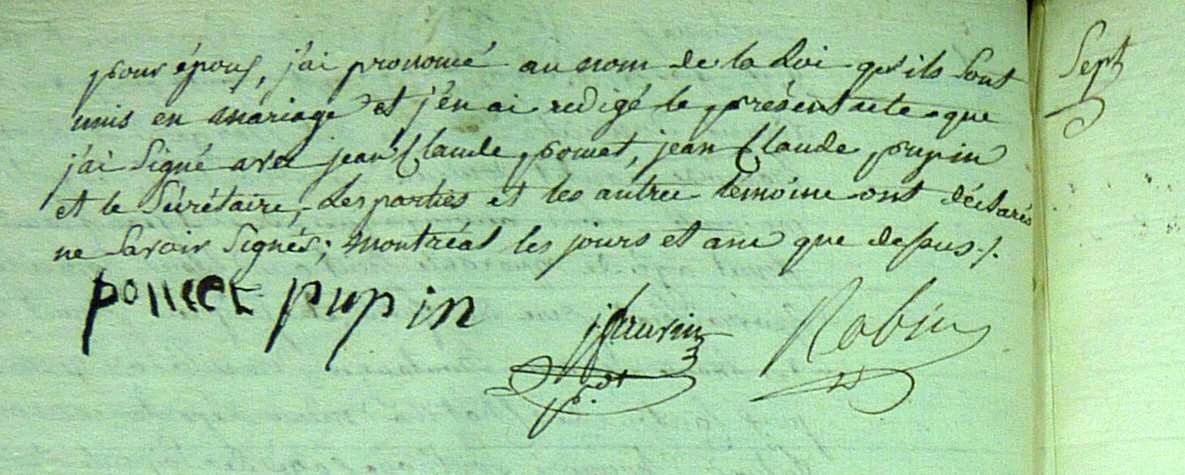 pour épous, j'ai prononcé au nom de la Loi qu'ils sont
unis en mariage et j'en ai redigé le présent acte que
j'ai Signé avec jean Claude poncet, jean Claude pupin
et le Sécrétaire, Les parties et les autres temoins ont déclarés
ne Savoir Signés; Montréal les jours et an que dessus ./.
poncet pupin
Robin
Sept